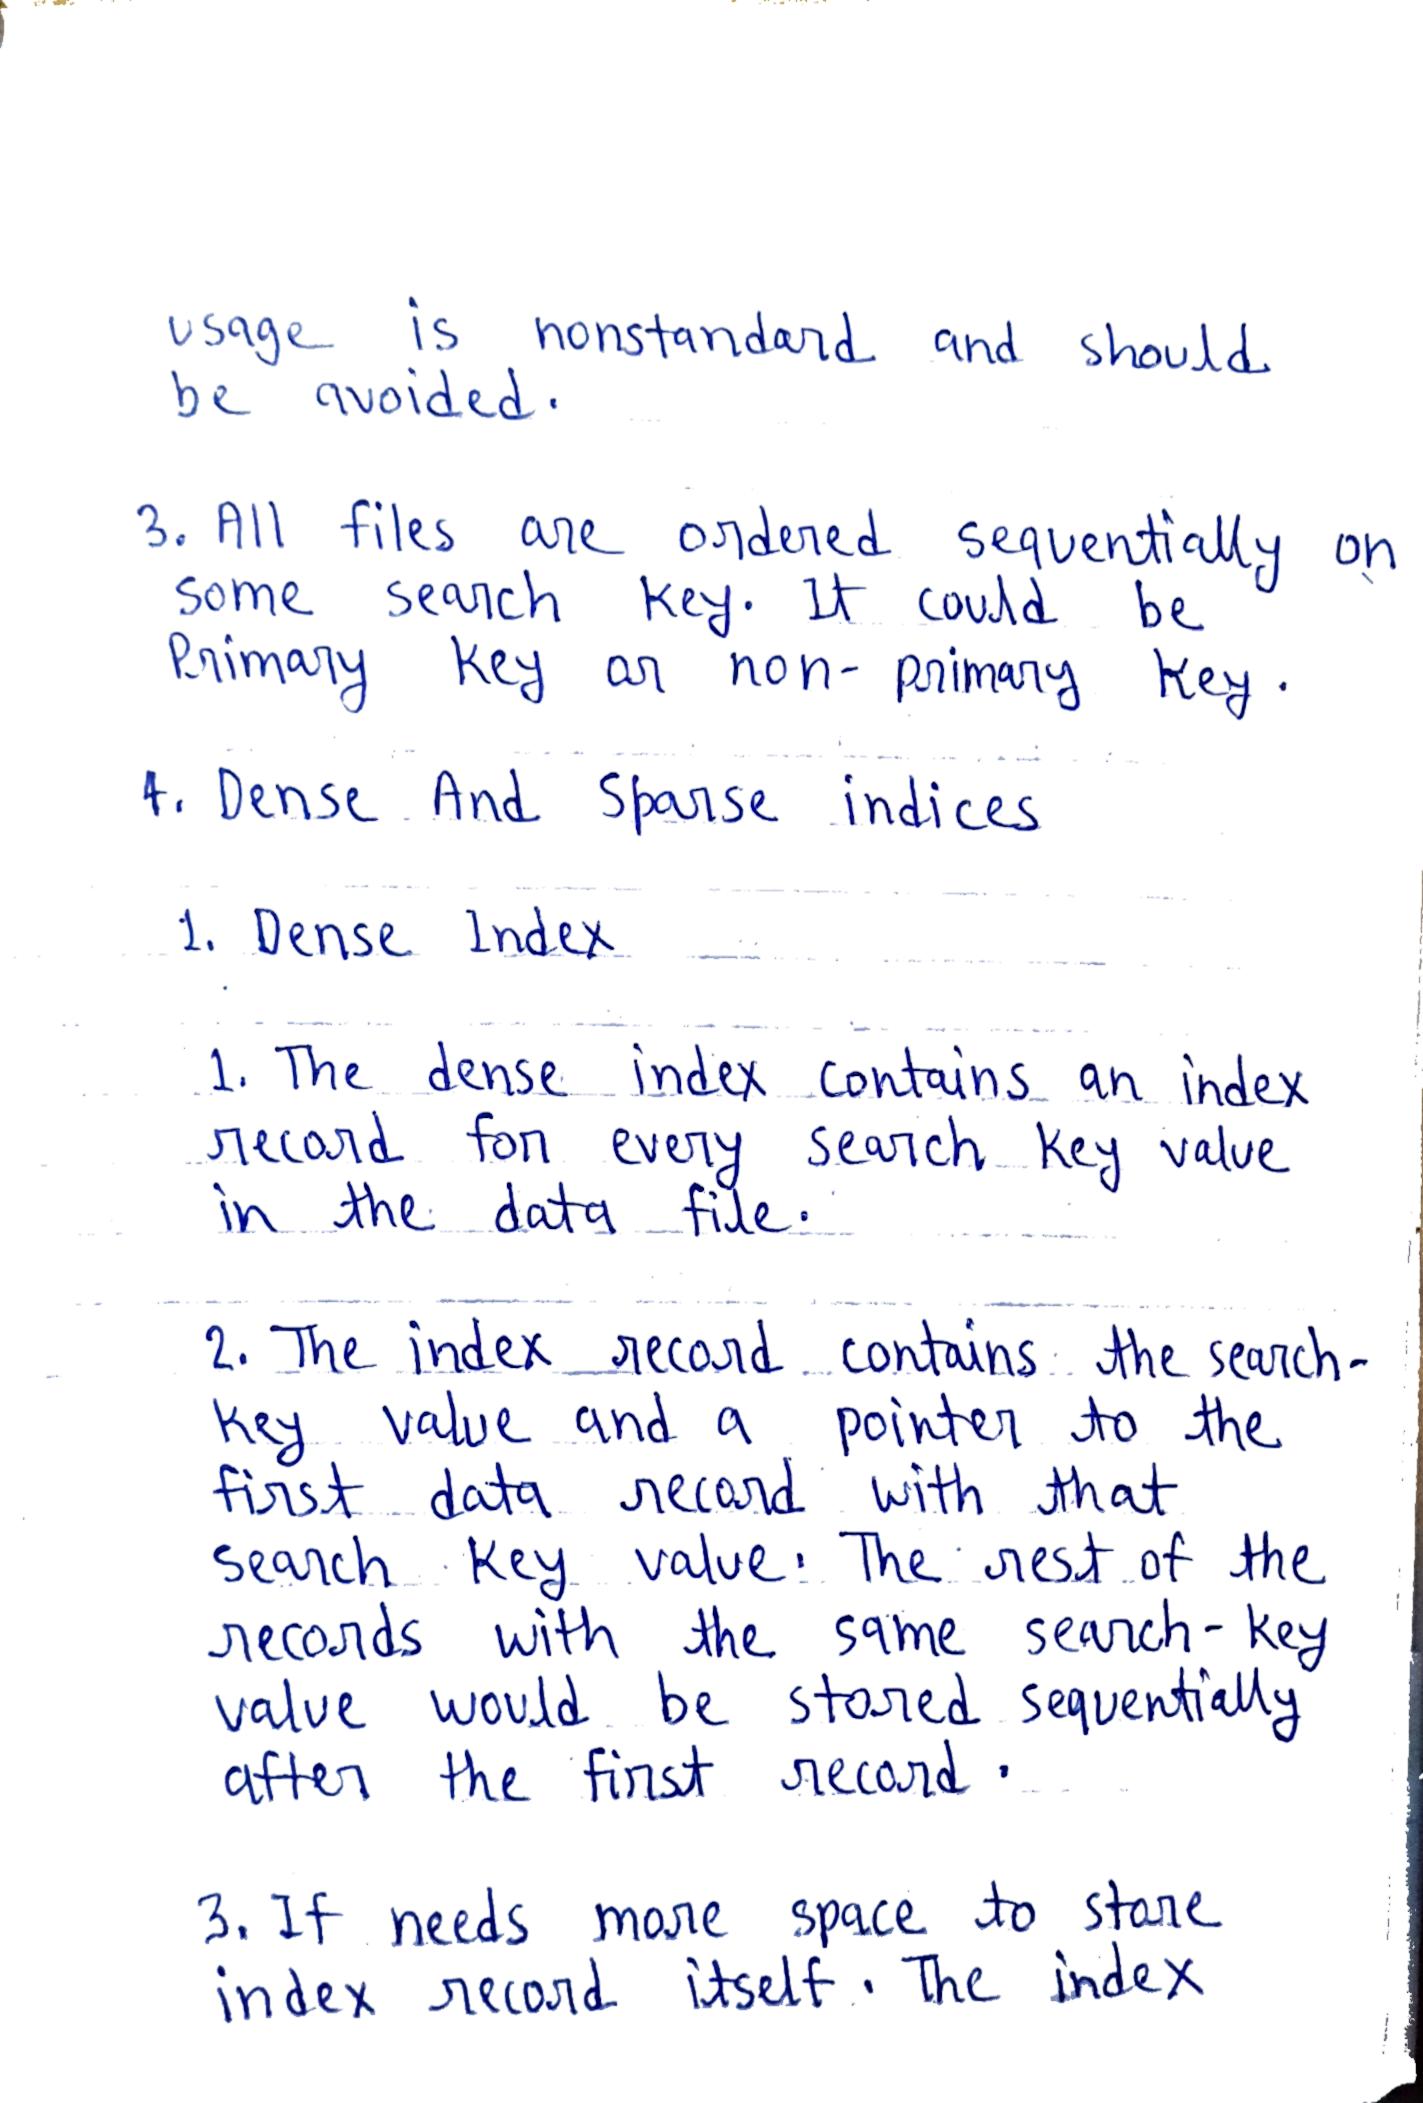 usage is nonstandard and should
be avoided.
3. All files are ordered sequentially on
some search key. It could be
Primary key or non-primary key.
4. Dense And Sparse indices
1. Dense Index
1. The dense index contains an index
record for every search key value
in the data file.
2. The index record contains the search-
key value and a pointer to the
first data record with that
search key value. The rest of the
records with the same search-key
value would be stored sequentially
after the first record.
3. If needs more space to store
index record itself. The index